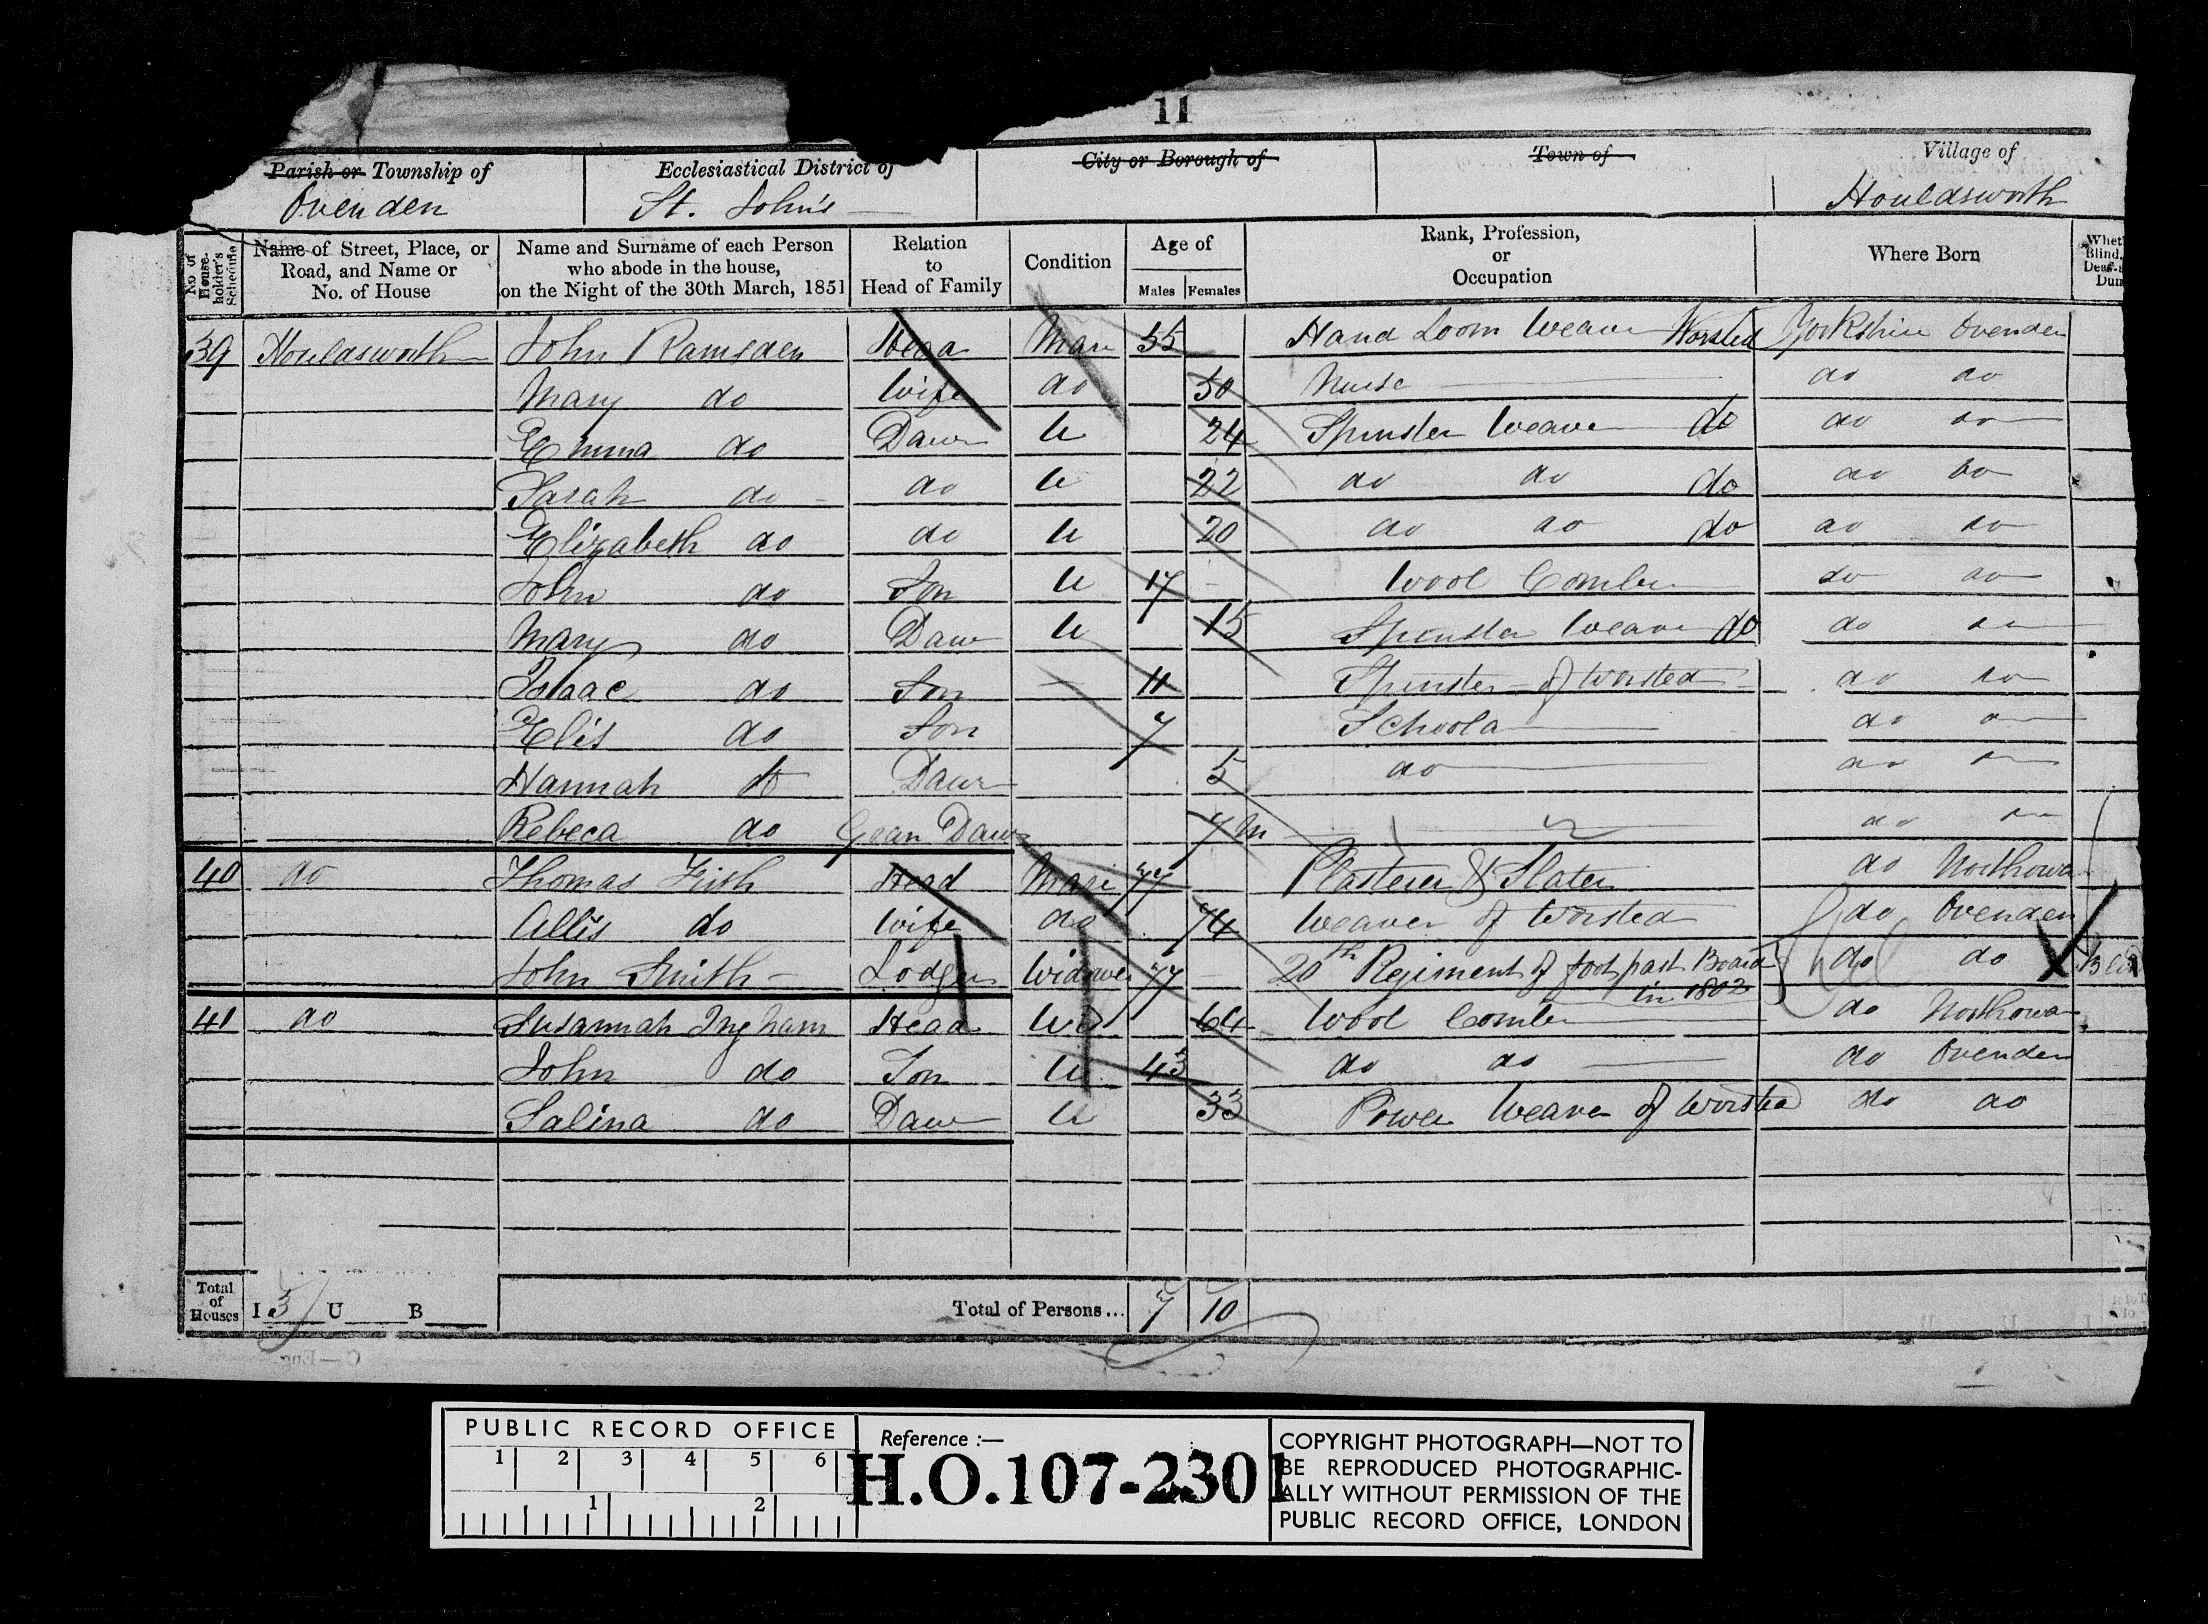 11
Parish or Township of Ecclesiastical District of City or Borough of Town of Village of
Ovenden St. John's Houldsworth
No. of House-holder's Schedule Name of Street, Place, or Road, and Name or No. of House Name and Surname of each Person who abode in the house, on the Night of the 30th March, 1851 Relation to Head of Family Condition Age of Males Females Rank, Profession, or Occupation Where Born Whet Blind, Deaf- Dum
39 Houldsworth John Ramsden Head Mar 55 Hand Loom Weaver Worsted Yorkshire Ovenden
Mary do Wife do 50 Nurse do do
Emma do Daur U 24 Spinster Weaver do do do
Sarah do do U 22 do do do do do
Elizabeth do do U 20 do do do do do
John do Son U 17 Wool Comber do do
Mary do Daur U 15 Spinster Weaver do do do
Isaac do Son 11 Spinster of Worsted do do
Elis do Son 7 Schoola do do
Hannah do Daur 5 do do do
Rebeca do Gran Daur 7 m do do
40 do Thomas Firth Head Mar 77 Plasterer & Slater do Northowram
Allis do Wife do 74 Weaver of Worsted do Ovenden
John Smith Lodger Widower 77 20th Regiment of foot past Board in 1802 do do Blind
41 do Susannah Ingham Head Wd 64 Wool Comber do Northowram
John do Son U 43 do do do Ovenden
Salina do Daur U 33 Power Weaver of Worsted do do
Total of Houses I 3 U B Total of Persons... 7 10
C—Eng.
PUBLIC RECORD OFFICE
1 2 3 4 5 6
1 2
Reference :—
H.O.107-2301
COPYRIGHT PHOTOGRAPH—NOT TO
BE REPRODUCED PHOTOGRAPHIC-
ALLY WITHOUT PERMISSION OF THE
PUBLIC RECORD OFFICE, LONDON